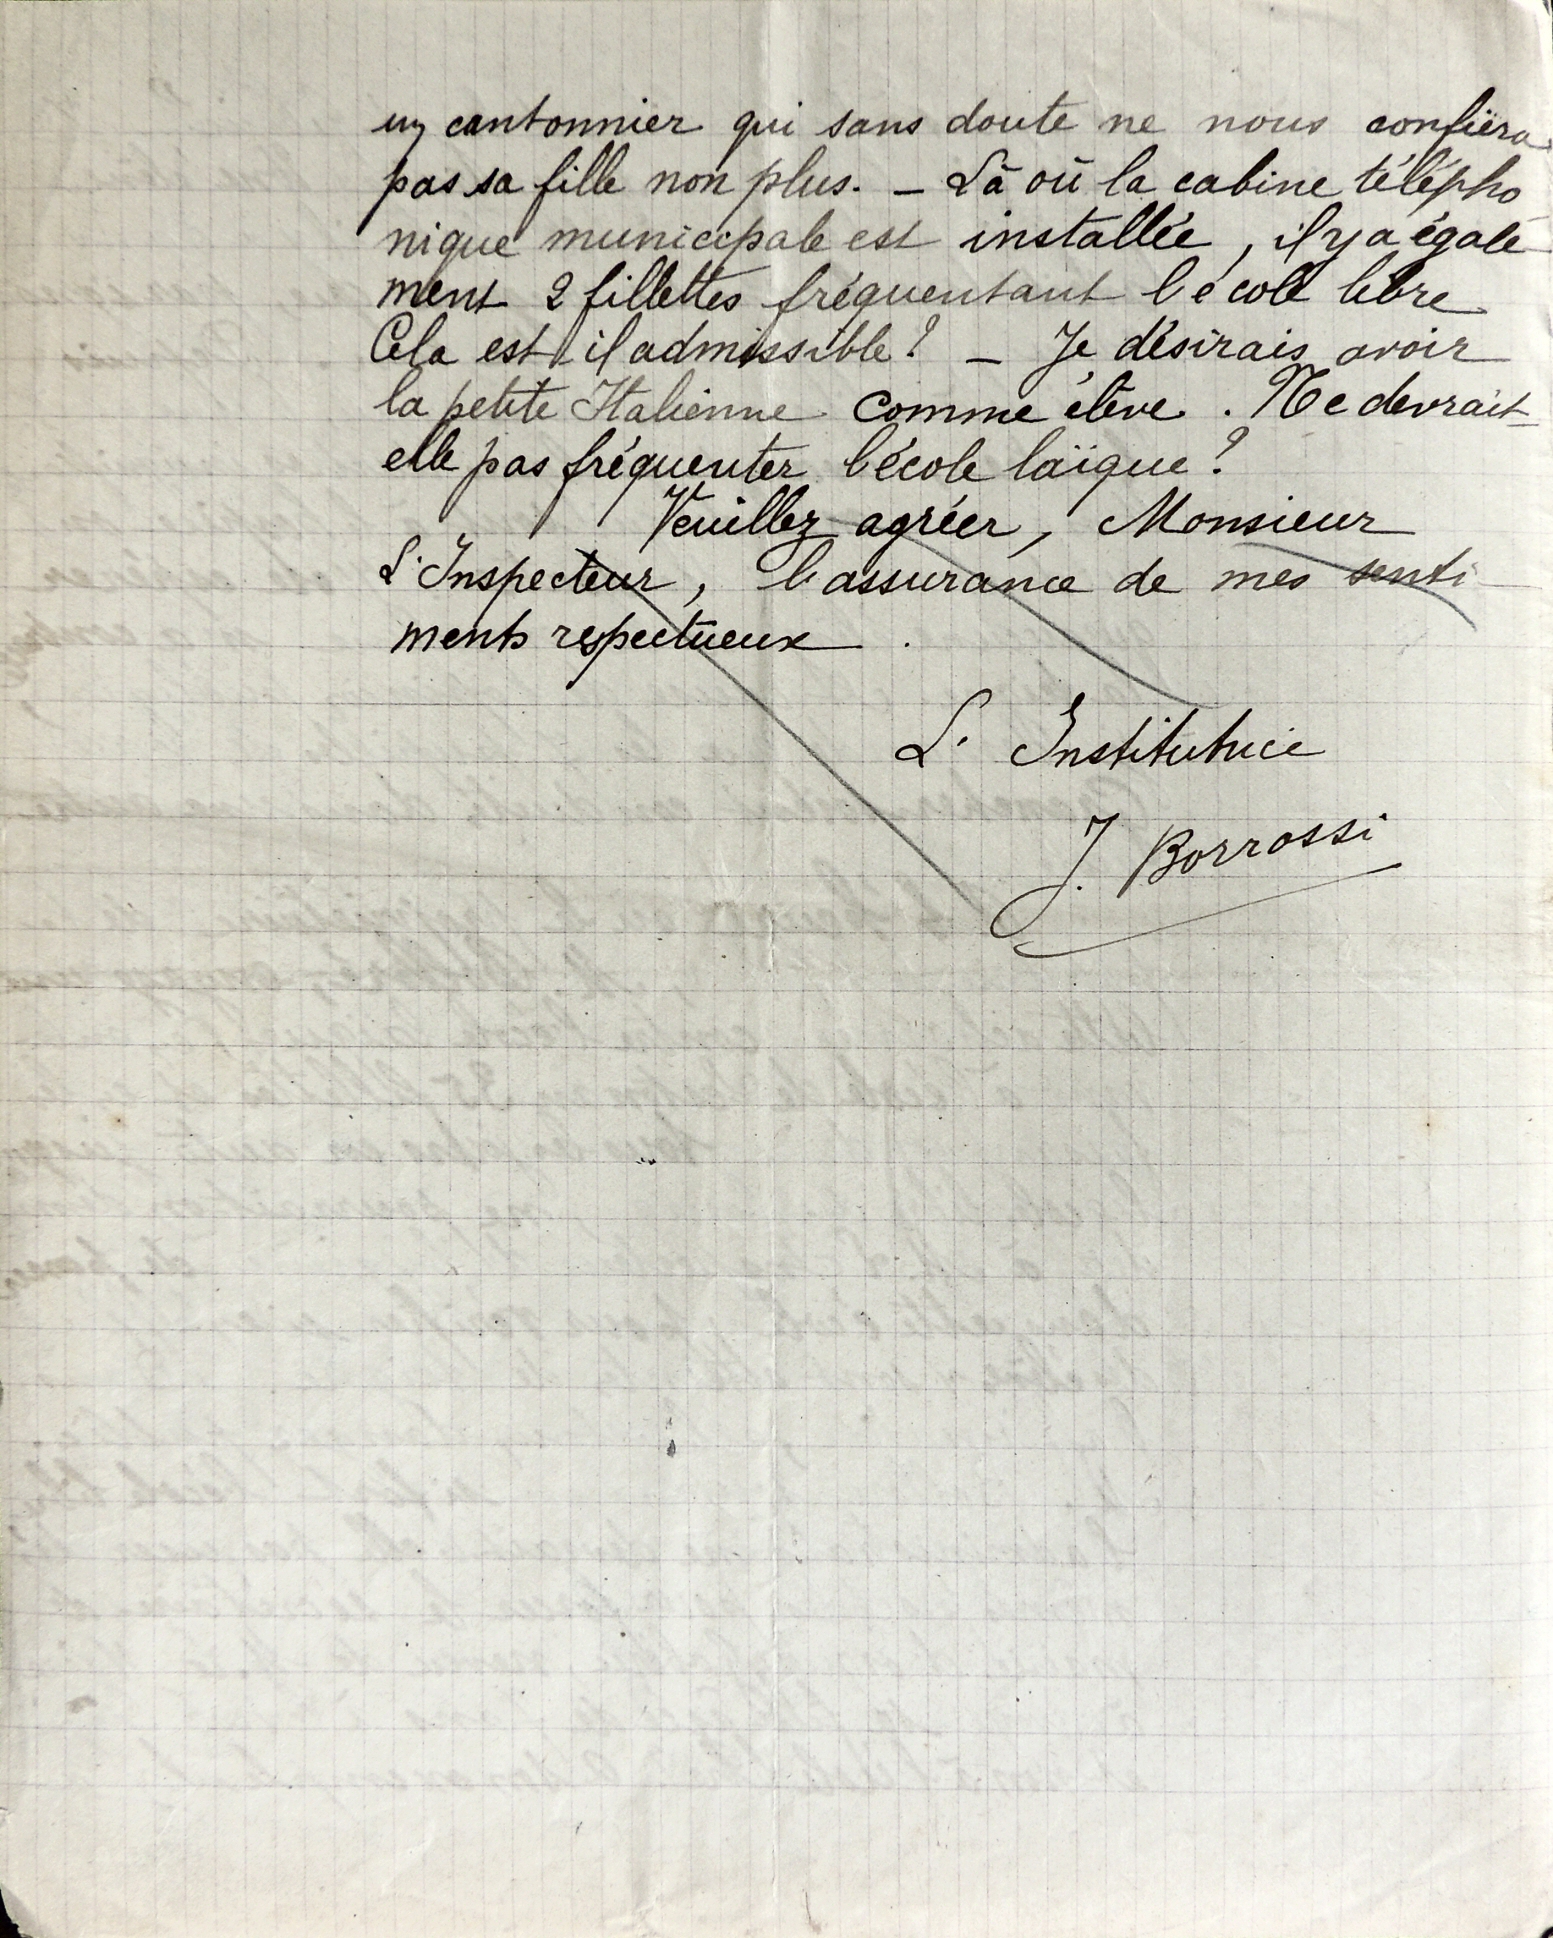 un cantonnier qui sans doute ne nous confiera
pas sa fille non plus. _ Là où la cabine télépho
nique municipale est installée, il y a égale
ment 2 fillettes fréquentant l'école libre
Cela est il admissible ? _ Je désirais avoir
la petite Italienne comme élève. Ne devrait-
elle pas fréquenter l'école laïque ?
Veuillez agréer, Monsieur
L'Inspecteur, l'assurance de mes senti
ments respectueux.
L'Institutrice
J. Borrossi